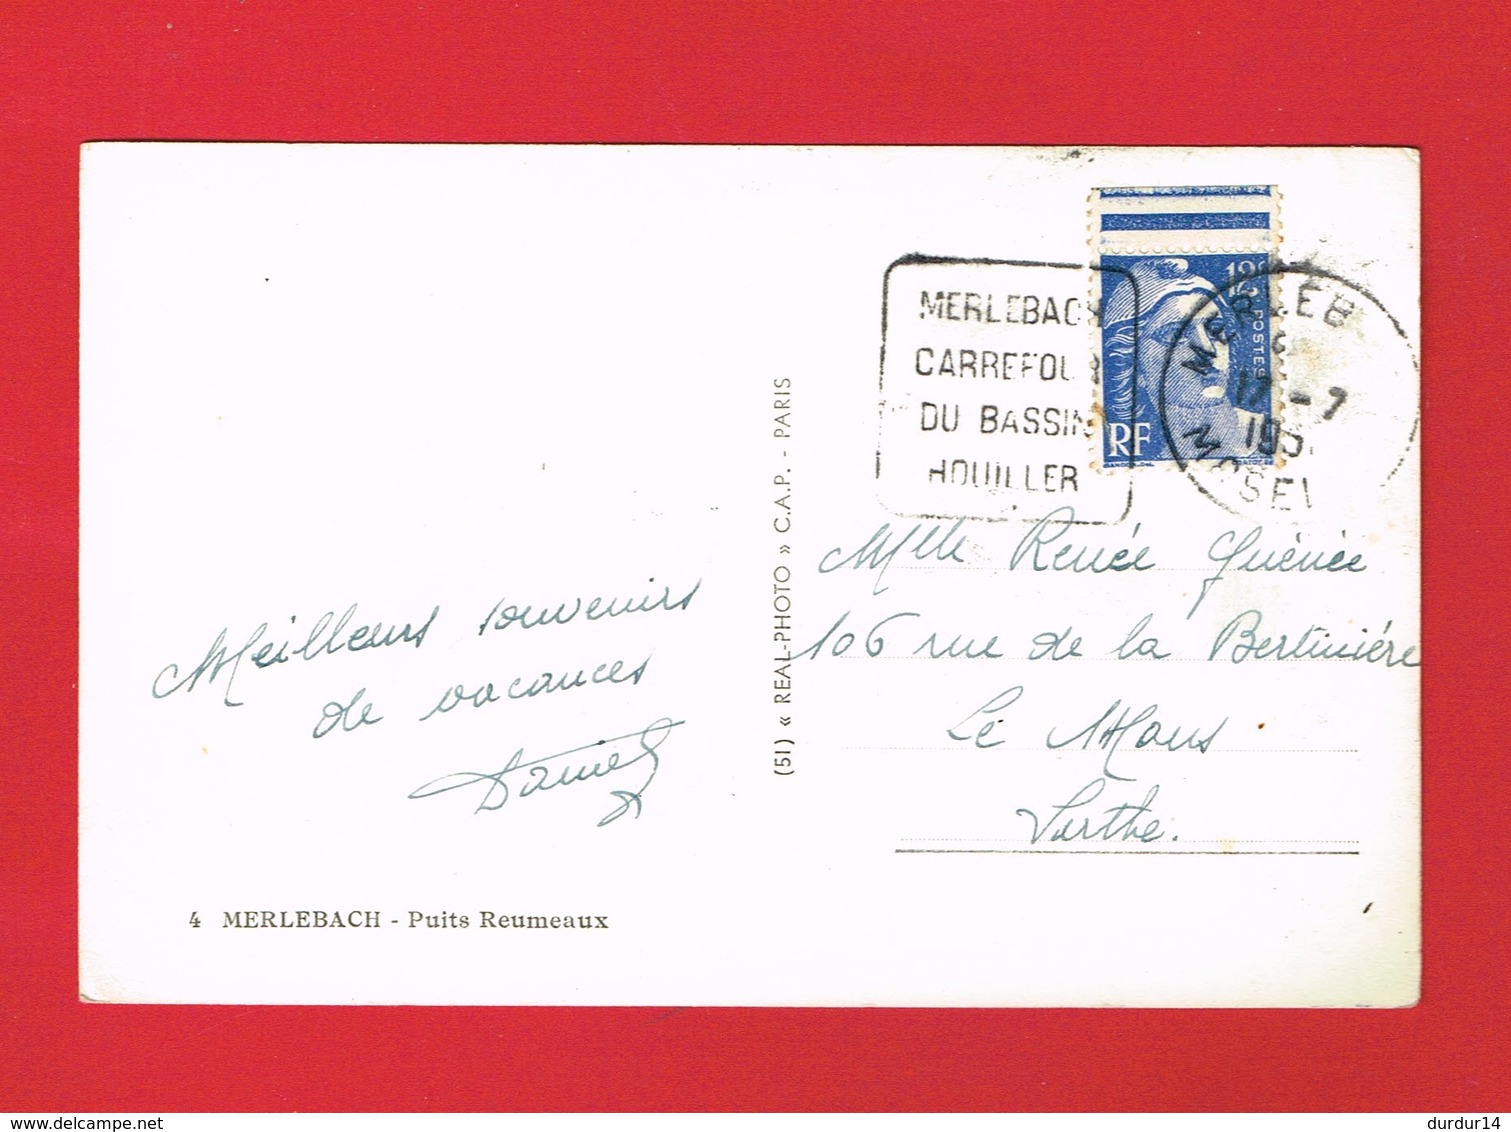 MERLEBACH
CARREFOUR
DU BASSIN
HOUILLER
12F
POSTES
RF
MERLEB
17 - 7
195
MOSEL
(51) « REAL-PHOTO » C.A.P. - PARIS
Meilleurs souvenirs
de vacances
Daniel
Mlle Renée Guénée
106 rue de la Bertinière
Le Mans
Sarthe.
4 MERLEBACH - Puits Reumeaux
delcampe.net
durdur14